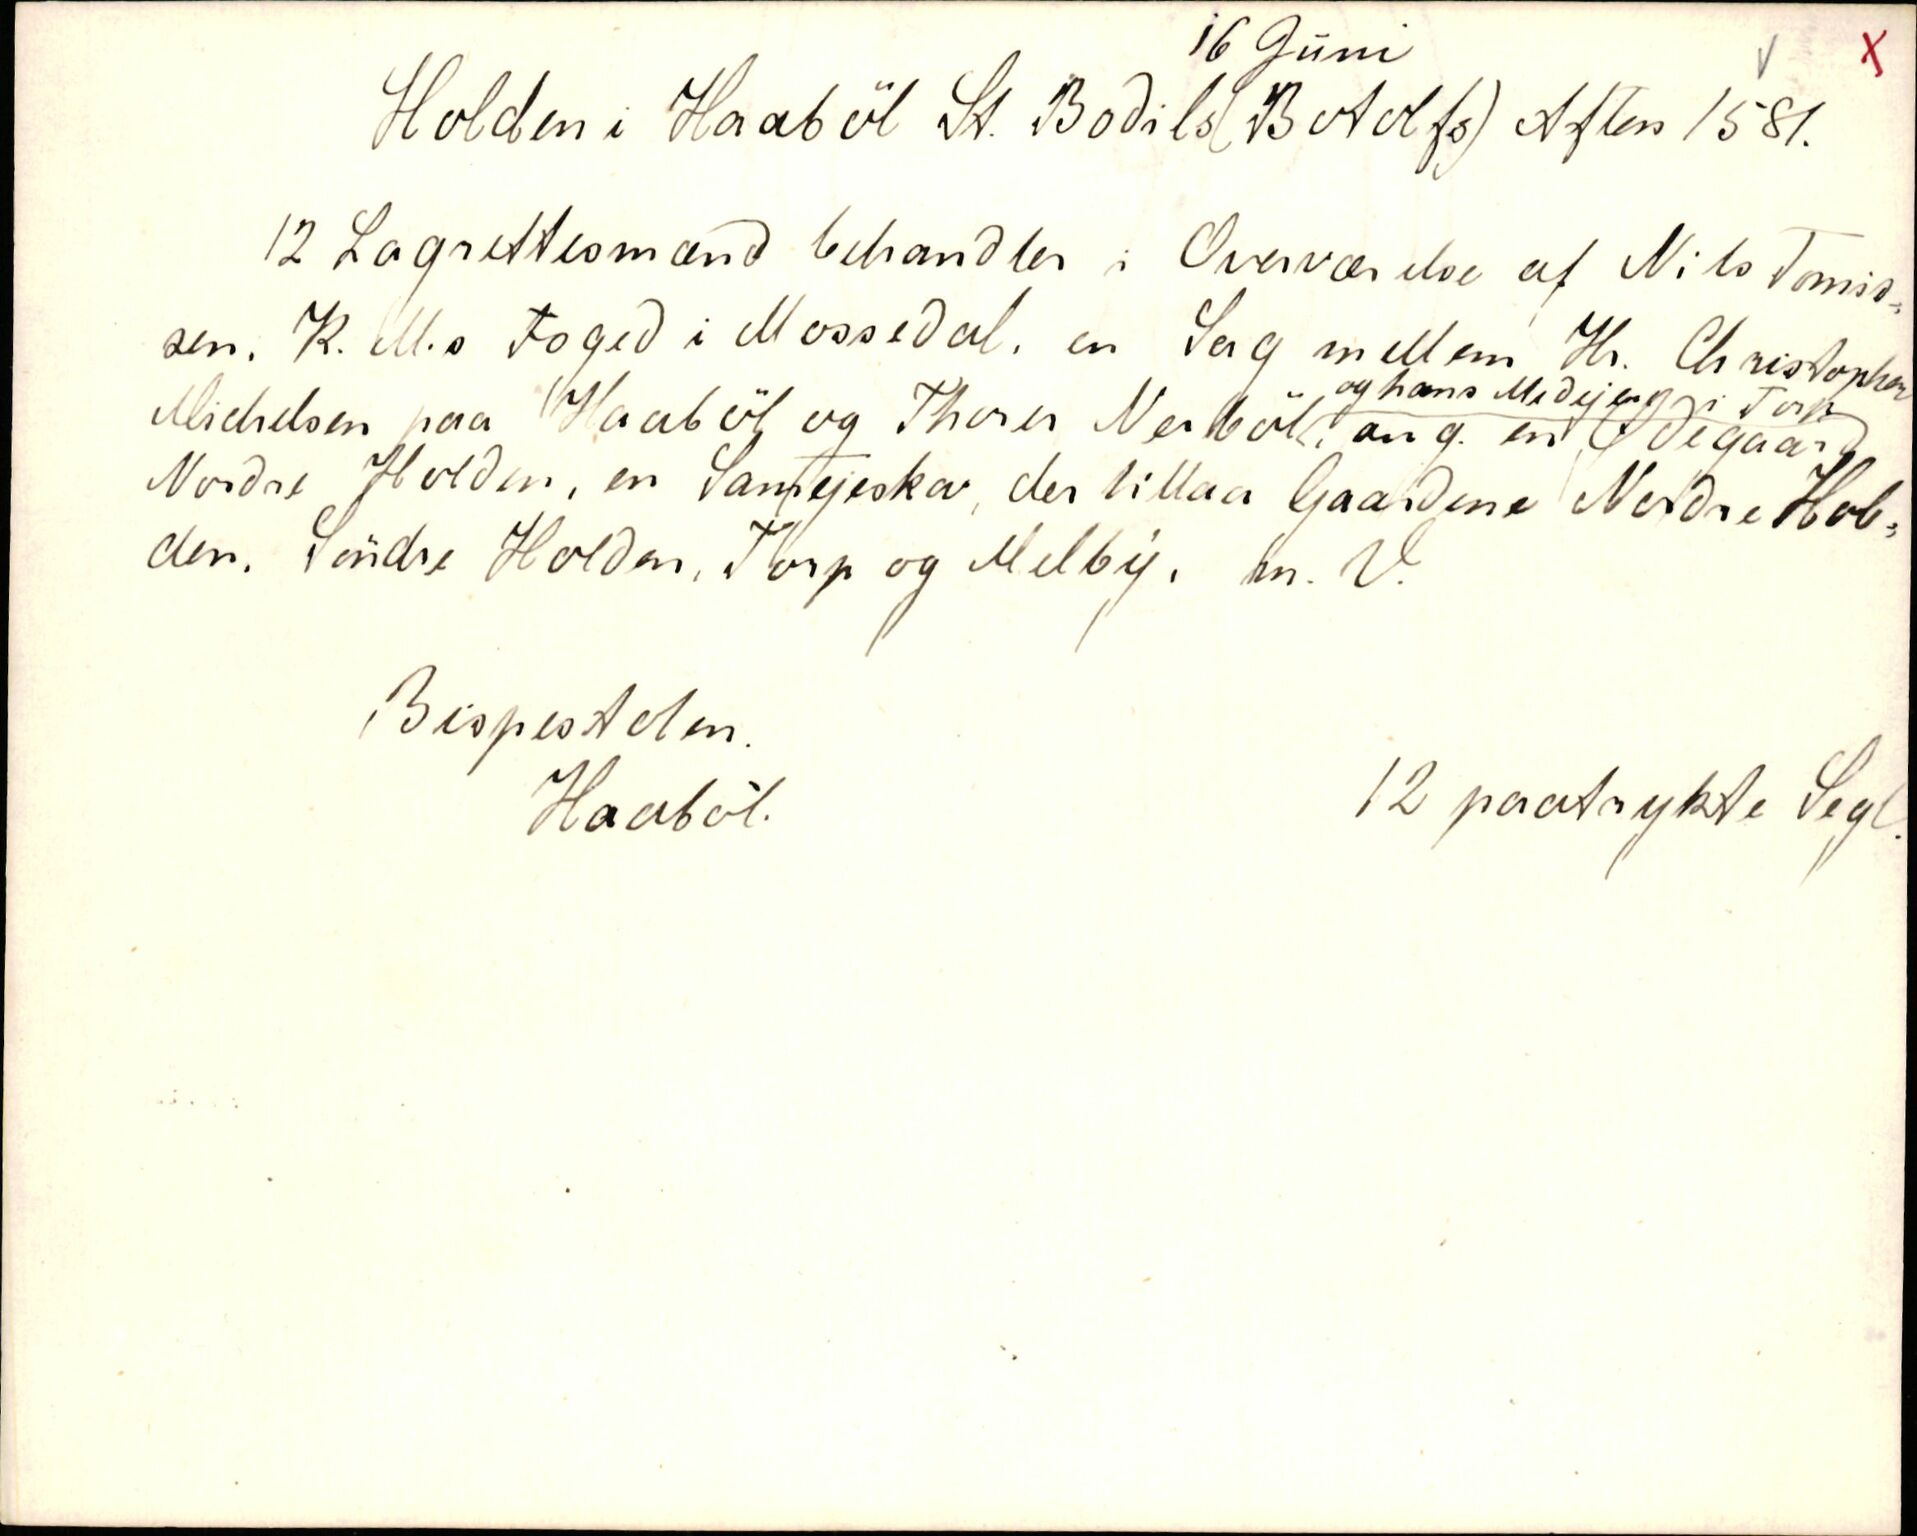 16 Juni
Holden i Haaböl St. Bodils (Botolfs) Aften 1581.
12 Lagrettesmænd behandler i Overværelse af Nils Tomis-
sen, K. M.s Foged i Mossedal, en Sag mellem Hr. Christopher
og hans Medejere i Torp
Michelsen paa Haaböl og Thorer Nerböl, ang. en Ödegaard
Nordre Holden, en Samejeskov, der tillaa Gaardene Nordre Hol-
den, Söndre Holden, Torp og Melby, m. V.
Bispestolen.
Haaböl.
12 paatrykte Segl.